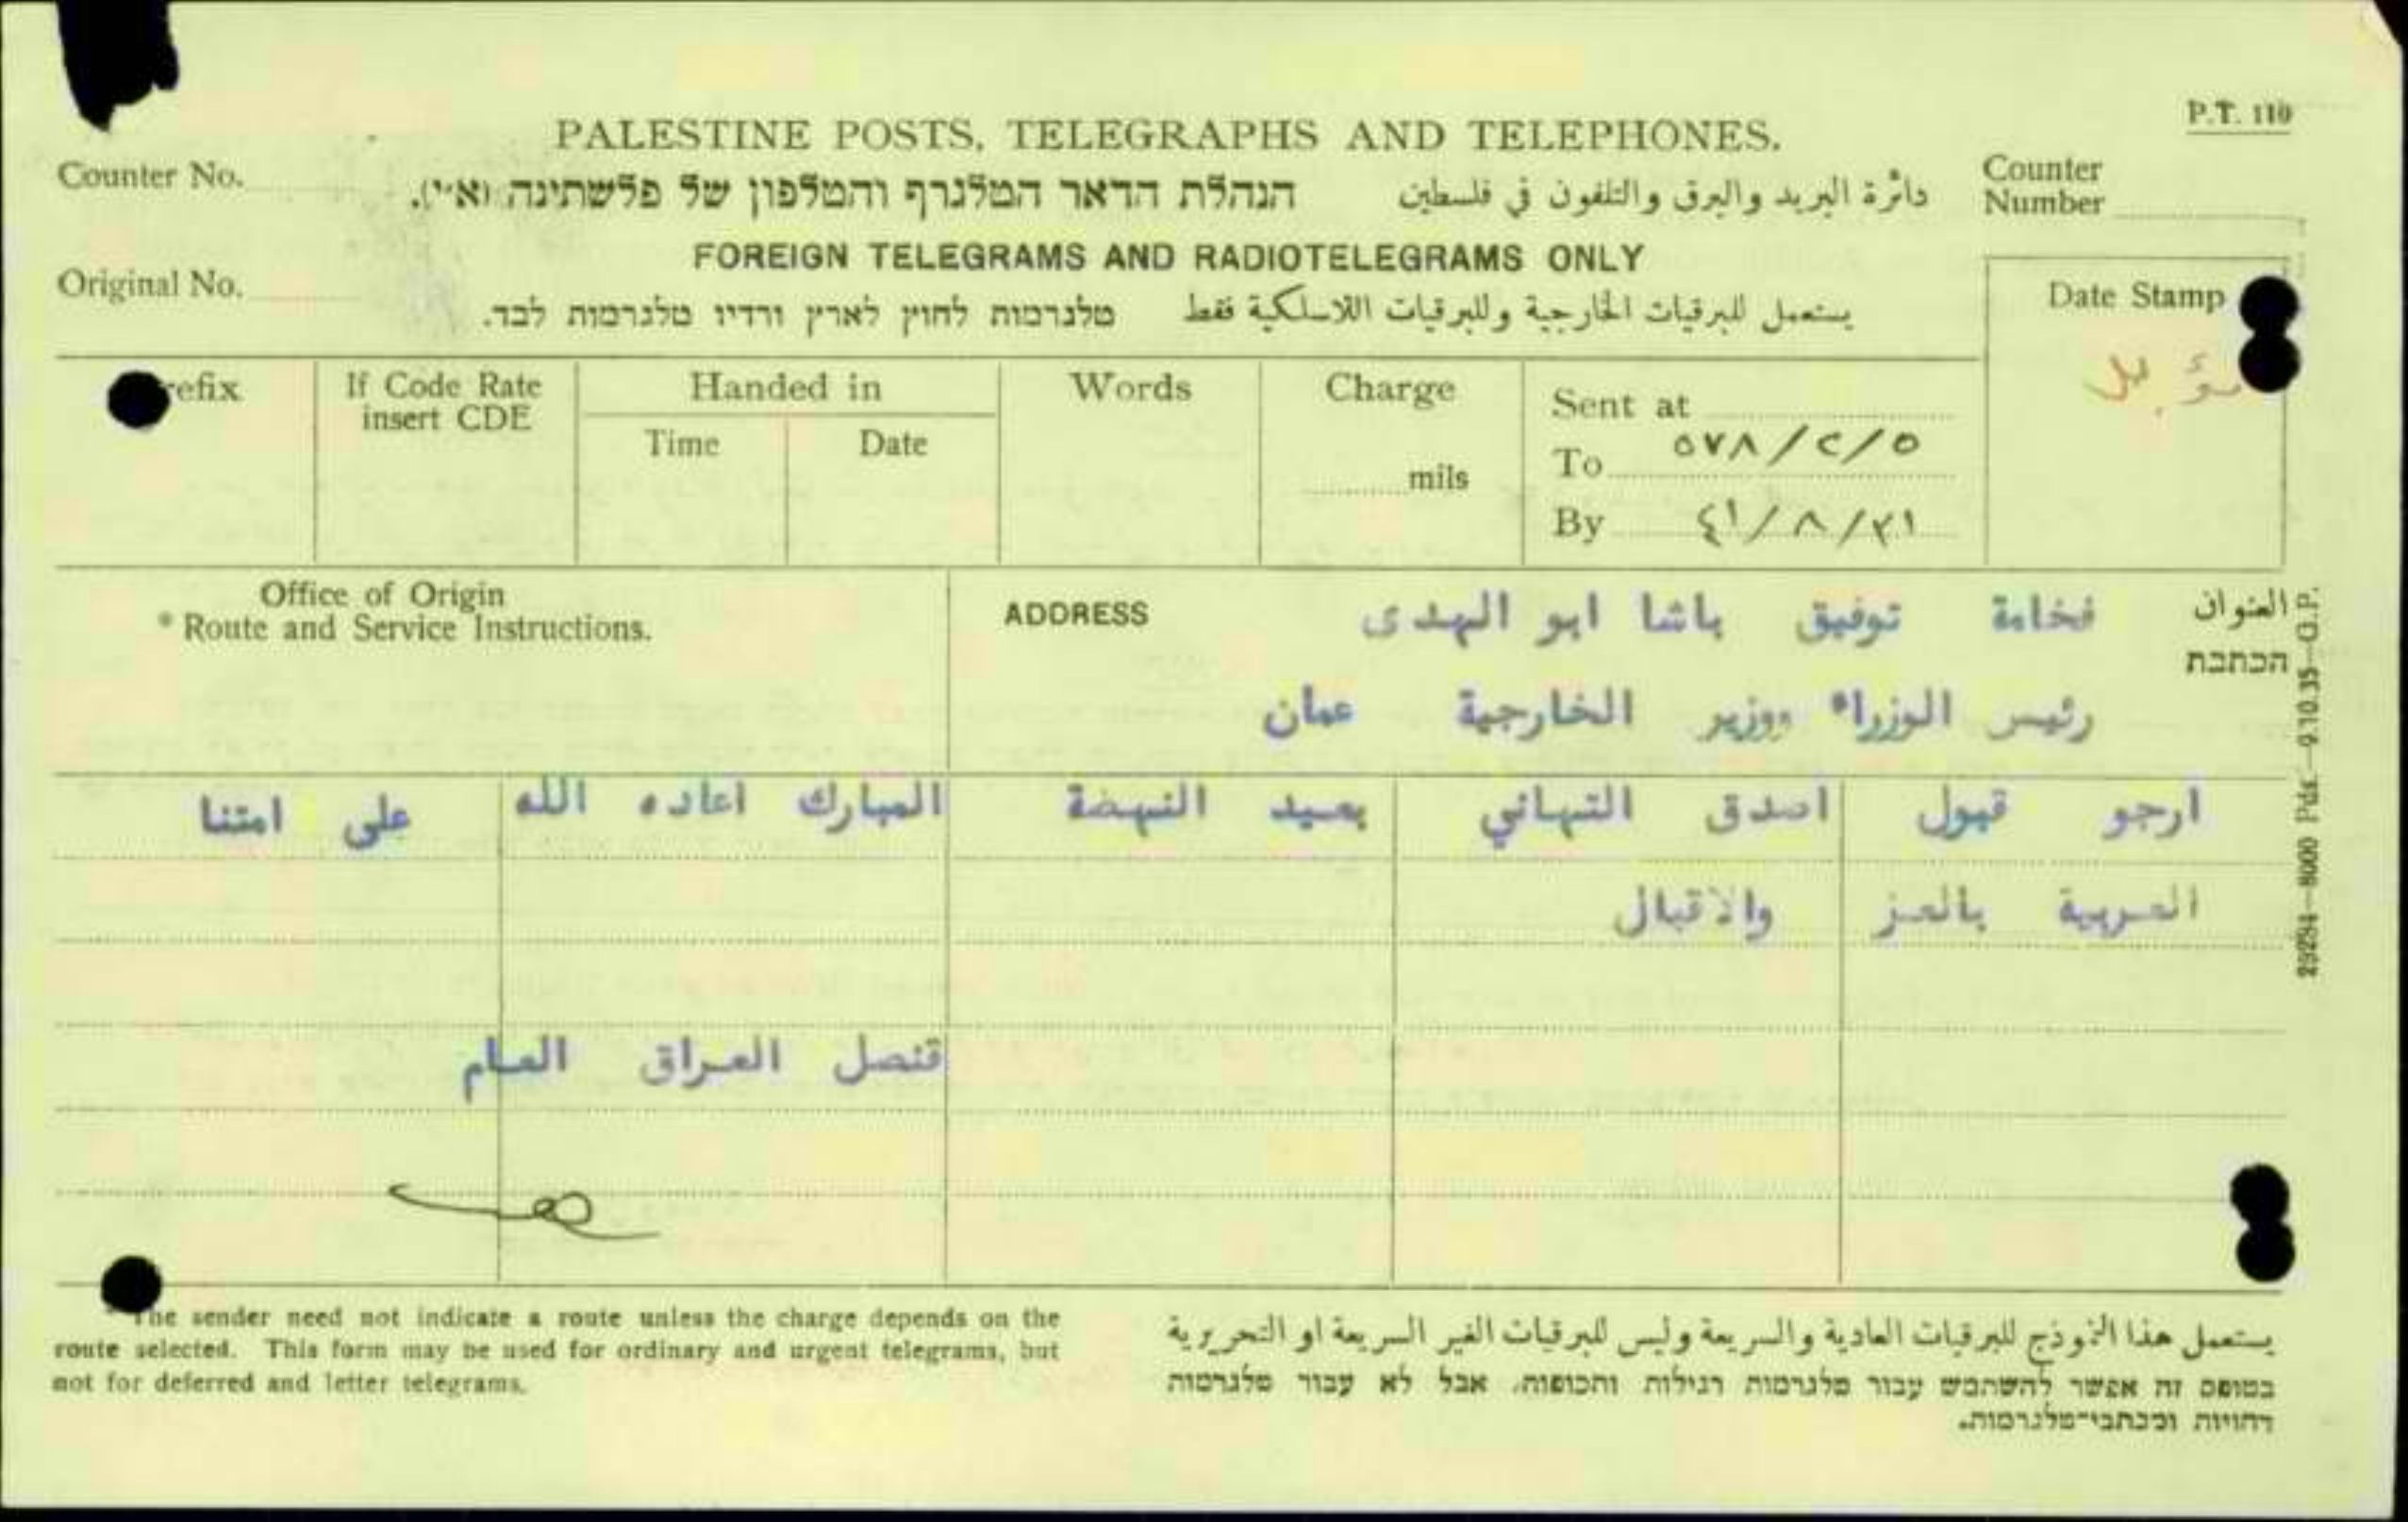 P.T. 110
PALESTINE POSTS, TELEGRAPHS AND TELEPHONES.
Counter No.
Counter Number
הנהלת הדאר המלגרף והטלפון של פלשתינה (א״י).
دائرة البريد والبرق والتلفون في فلسطين
FOREIGN TELEGRAMS AND RADIOTELEGRAMS ONLY
Original No.
Date Stamp
טלגרמות לחוץ לארץ ורדיו טלגרמות לבד.
يستعمل للبرقيات الخارجية وللبرقيات اللاسلكية فقط
refix
If Code Rate insert CDE
Handed in
Time
Date
Words
Charge
mils
Sent at
To ٥٧٨/٢/٥
By ٤١/٨/٣١
Office of Origin
* Route and Service Instructions.
ADDRESS
العنوان
הכתבת
فخامة توفيق باشا ابو الهدى
رئيس الوزراء ووزير الخارجية عمان
ارجو قبول اصدق التهاني بعيد النهضة المبارك اعاده الله على امتنا
العربية بالعز والاقبال
قنصل العراق العام
29234—8000 Pds.—9.10.35—G.P.
The sender need not indicate a route unless the charge depends on the
route selected. This form may be used for ordinary and urgent telegrams, but
not for deferred and letter telegrams.
يستعمل هذا النموذج للبرقيات العادية والسريعة وليس للبرقيات الغير السريعة او التحريرية
בטופס זה אפשר להשתמש עבור טלגרמות רגילות ותכופות, אבל לא עבור טלגרמות
דחויות ומכתבי־טלגרמות.